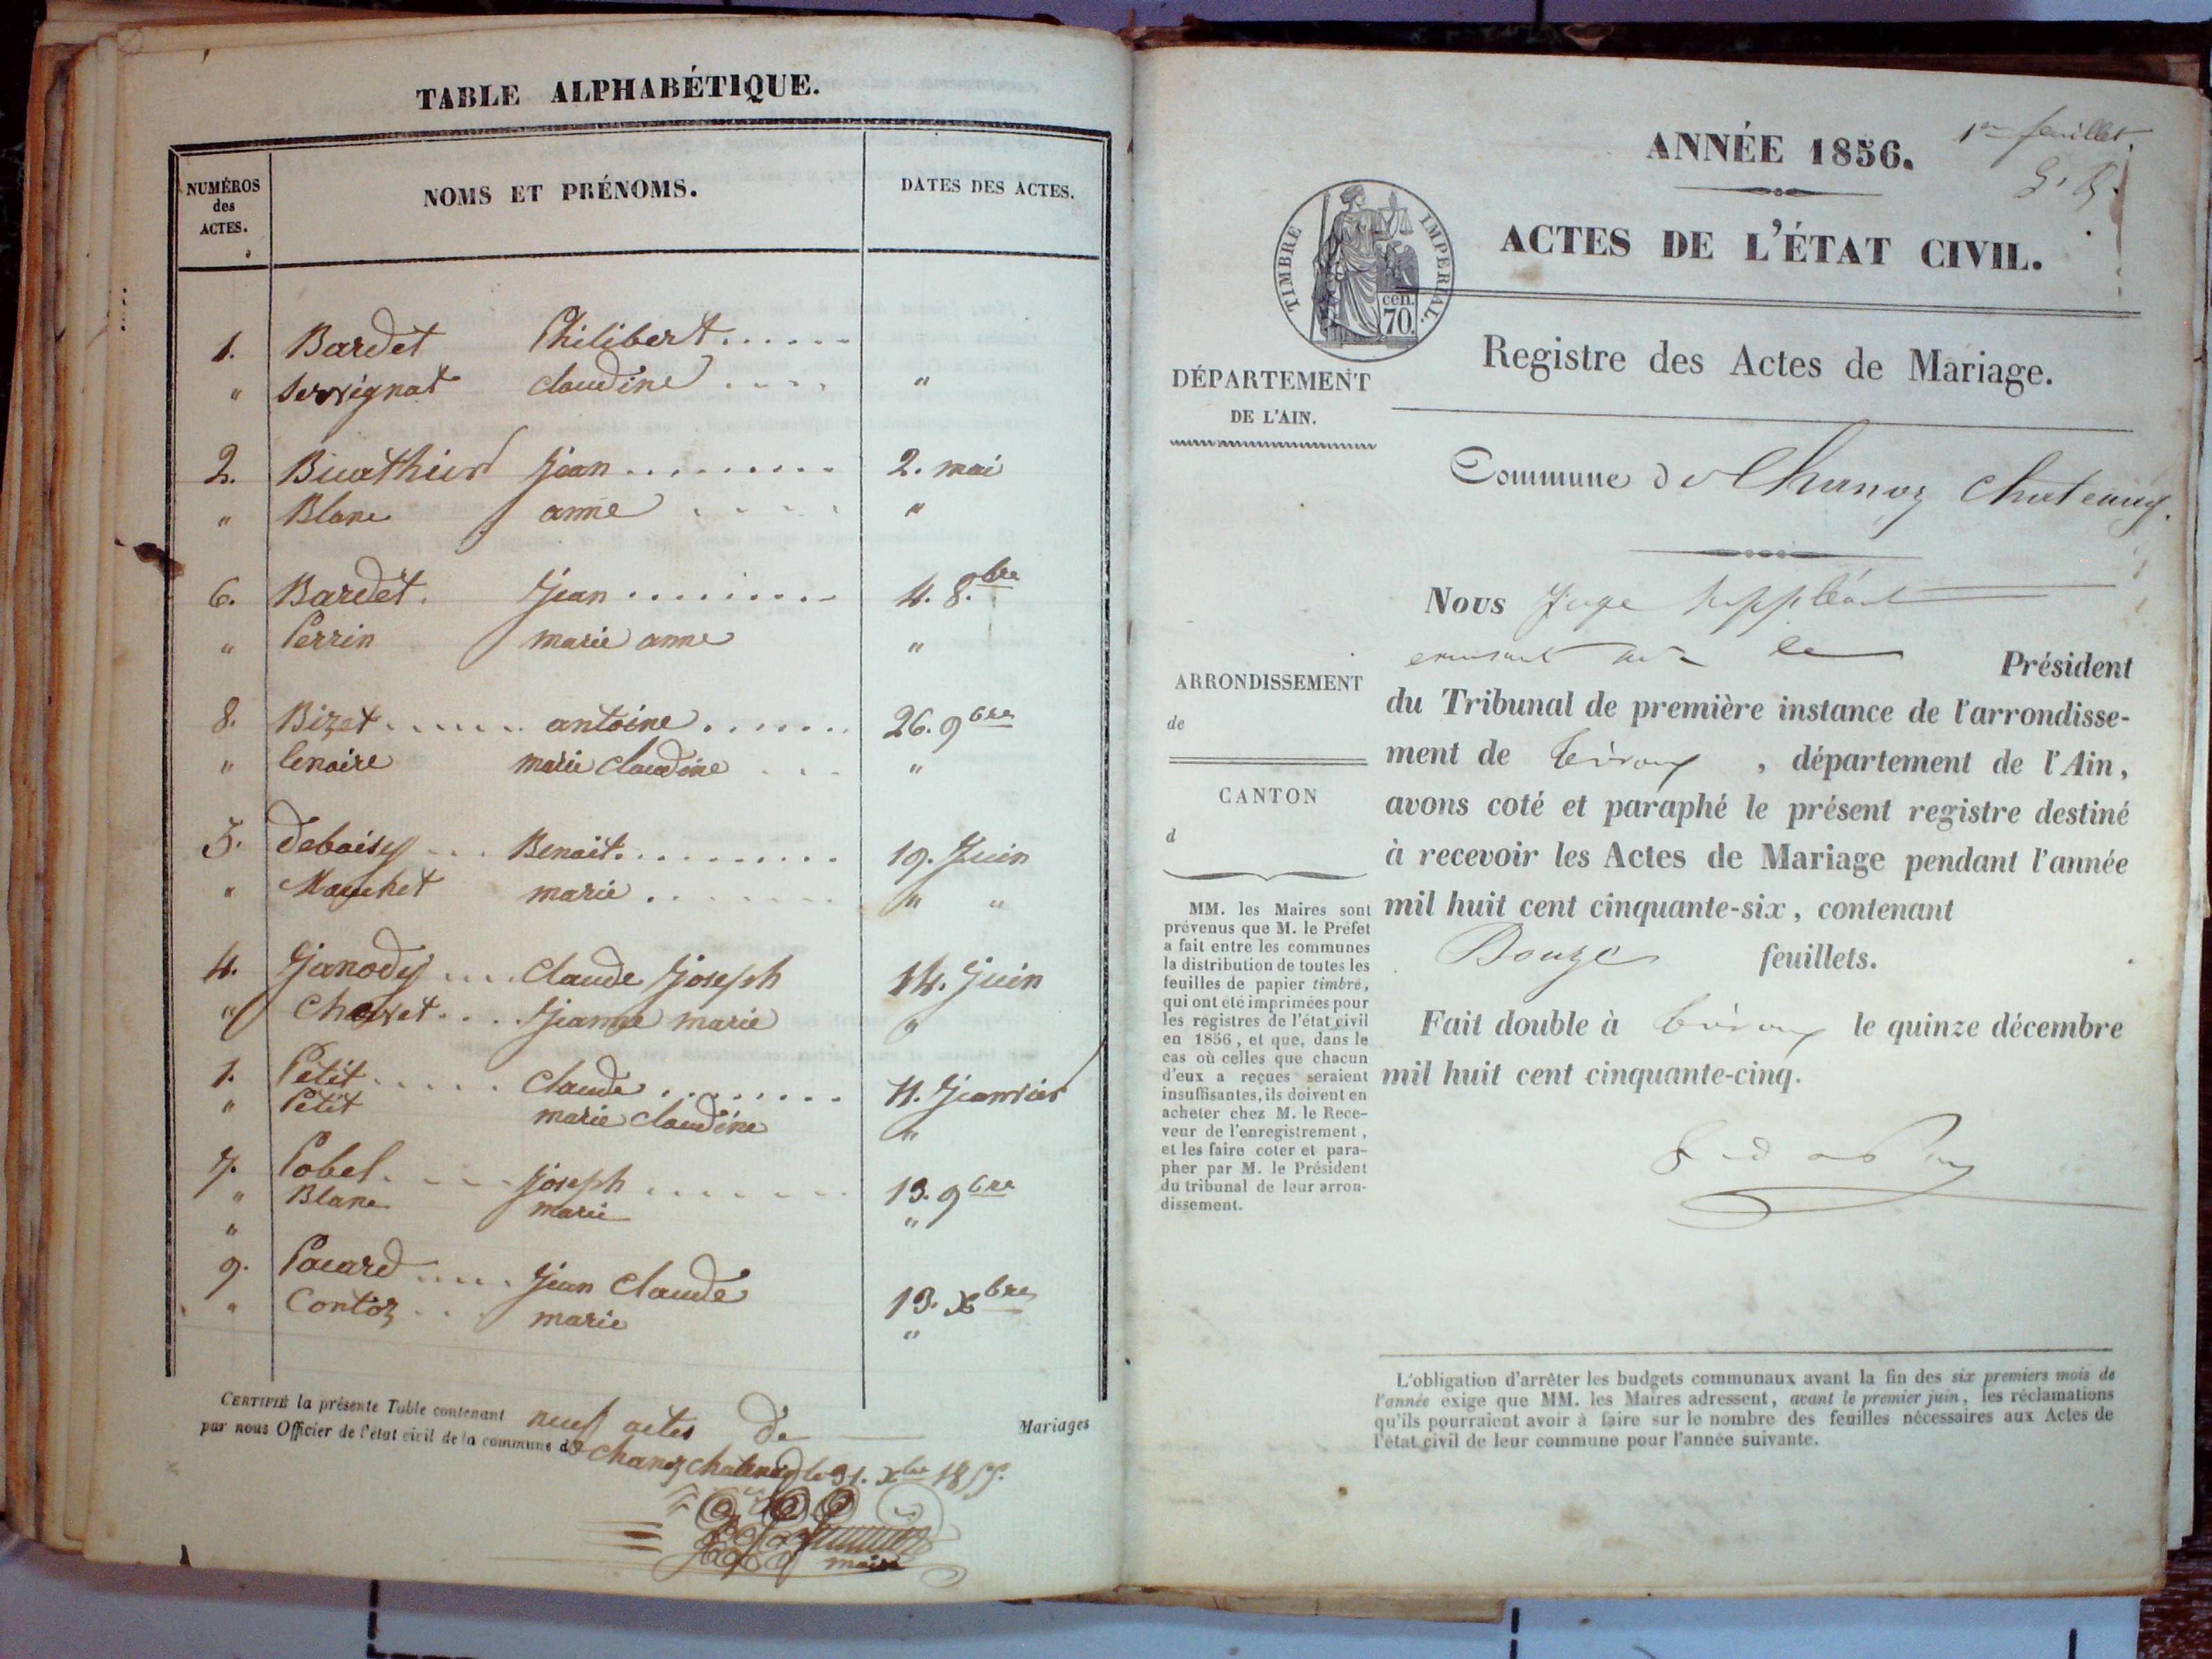 TABLE ALPHABÉTIQUE.
NUMÉROS
des
ACTES.
NOMS ET PRÉNOMS.
DATES DES ACTES.
1. Bardet Philibert......
" claudine .... "
2. Jean ......... 2. mai
" Blanc anne ..... "
6. Bardet. Jean ......... 4. 8.bre
" Perrin marie anne "
8. Bizet ...... antoine ...... 26. 9bre
" lenoire marie claudine ... "
Benoit .......... 19. Juin
" marie ....... " "
4. Janody .... Claude Joseph 14. Juin
" Jeanne marie "
1. Petit ..... Claude ....... 11. Janvier
" Petit marie claudine "
7. Pobel .... Joseph ...... 13. 9bre
" Blanc marie "
"
9. Pacard ..... Jean Claude 13. Xbre
" Contoz .. marie "
CERTIFIÉ la présente Table contenant neuf actes de Mariages
par nous Officier de l'état civil de la commune de chanoz chatenay le 31. Xbre 1855.
maire
1er feuillet.
ANNÉE 1856.
TIMBRE IMPERIAL.
70 cen.
ACTES DE L'ÉTAT CIVIL.
Registre des Actes de Mariage.
DÉPARTEMENT
DE L'AIN.
Commune de Chanoz Chatenay.
Nous Juge suppléant
le Président
du Tribunal de première instance de l'arrondisse-
ment de trévoux, département de l'Ain,
avons coté et paraphé le présent registre destiné
à recevoir les Actes de Mariage pendant l'année
mil huit cent cinquante-six, contenant
Douze feuillets.
Fait double à trévoux le quinze décembre
mil huit cent cinquante-cinq.
ARRONDISSEMENT
de
CANTON
d
MM. les Maires sont
prévenus que M. le Préfet
a fait entre les communes
la distribution de toutes les
feuilles de papier timbré,
qui ont été imprimées pour
les registres de l'état civil
en 1856, et que, dans le
cas où celles que chacun
d'eux a reçues seraient
insuffisantes, ils doivent en
acheter chez M. le Rece-
veur de l'enregistrement,
et les faire coter et para-
pher par M. le Président
du tribunal de leur arron-
dissement.
L'obligation d'arrêter les budgets communaux avant la fin des six premiers mois de
l'année exige que MM. les Maires adressent, avant le premier juin, les réclamations
qu'ils pourraient avoir à faire sur le nombre des feuilles nécessaires aux Actes de
l'état civil de leur commune pour l'année suivante.